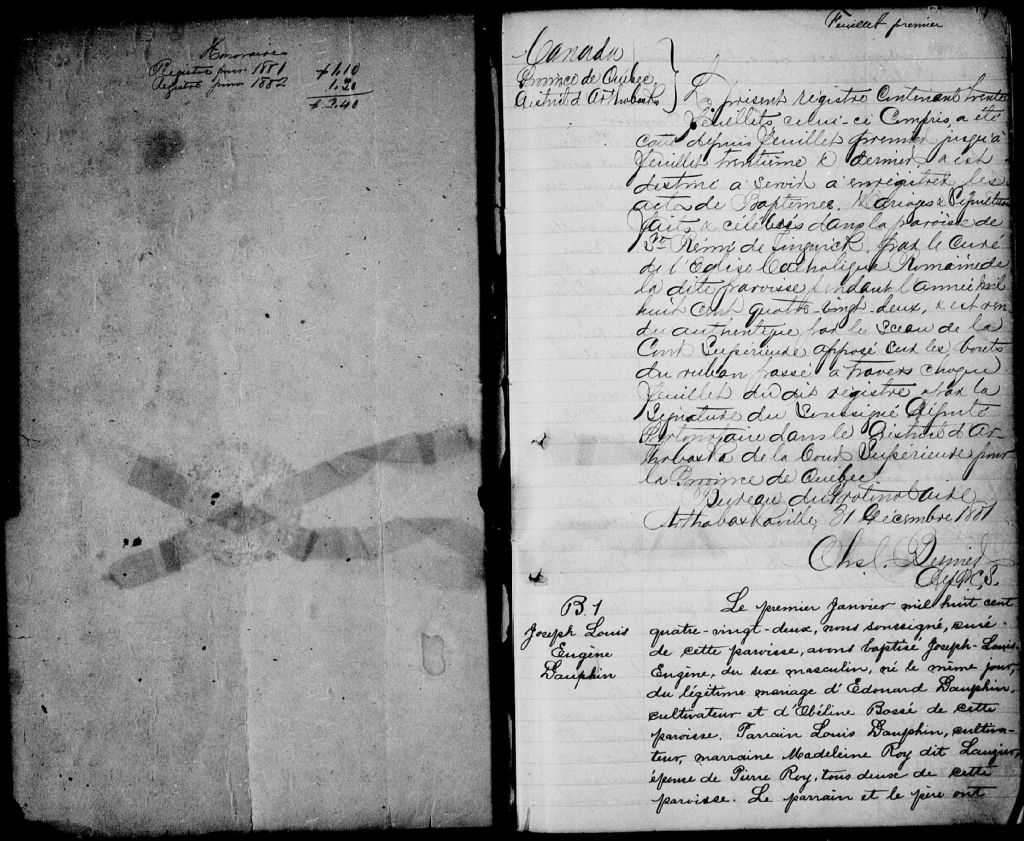 Honoraires
Registre pour 1881 $1.10
Registre pour 1882 1.30
$2.40
Feuillet premier
Canada
Province de Québec
District d'Arthabaska
Le présent registre contenant trente
feuillets celui-ci compris, a été
coté depuis feuillet premier jusqu'à
feuillet trentième & dernier, & est
destiné à servir à enregistrer les
actes de Baptêmes, Mariages & Sépultures
faits & célébrés dans la paroisse de
St Rémi de Tingwick, par le Curé
de l'Eglise Catholique Romaine de
la dite paroisse pendant l'année mil
huit cent quatre-vingt-deux, & est ren-
du authentique par le Sceau de la
Cour Supérieure apposé sur les bouts
du ruban passé à travers chaque
feuillet du dit registre & par la
Signature du Soussigné Député
Protonotaire dans le District d'Ar-
thabaska de la Cour Supérieure pour
la Province de Québec.
Bureau du Protonotaire
Arthabaskaville, 31 Décembre 1881
B. 1
Joseph Louis
Eugène
Dauphin
Le premier Janvier mil huit cent
quatre-vingt-deux, nous soussigné, curé
de cette paroisse, avons baptisé Joseph-Louis-
Eugène, du sexe masculin, né le même jour,
du légitime mariage d'Edouard Dauphin,
cultivateur et d'Obéline Bossé de cette
paroisse. Parrain Louis Dauphin, cultiva-
teur, marraine Madeleine Roy dit Lauzier,
épouse de Pierre Roy, tous deux de cette
paroisse. Le parrain et le père ont